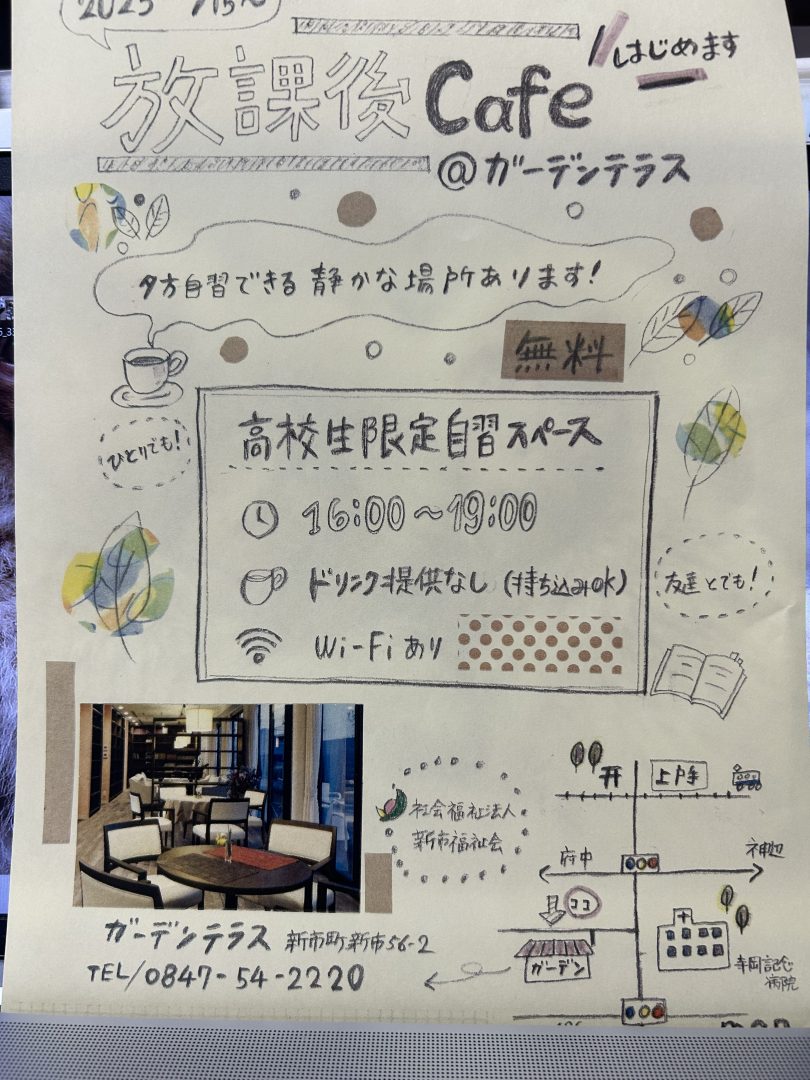 2025
/15~
はじめます
放課後Cafe
@ガーデンテラス
夕方自習できる静かな場所あります!
無料
高校生限定自習スペース
ひとりでも!
16:00~19:00
ドリンク提供なし(持ち込みOK)
友達とでも!
Wi-Fiあり
上戸手
社会福祉法人
新市福祉会
府中
神辺
ココ
ガーデン
寺岡記念
病院
ガーデンテラス 新市町新市56-2
TEL/0847-54-2220